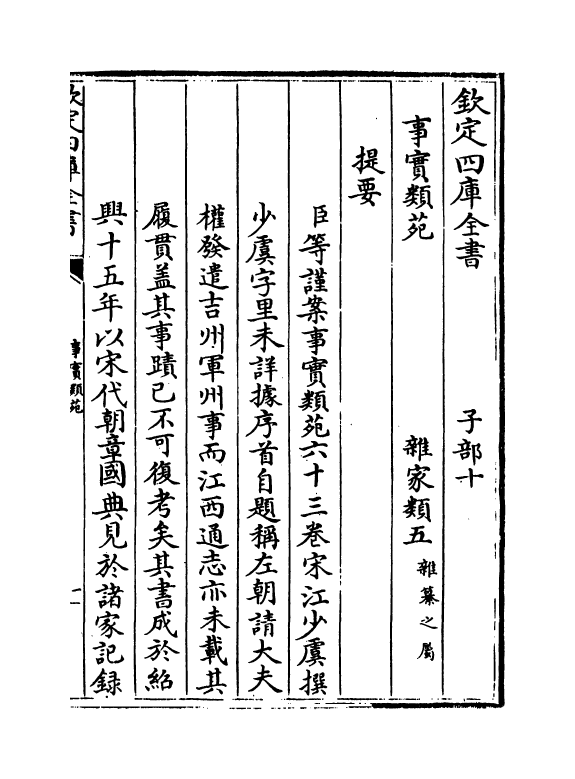 欽定四庫全書　子部十
事實類苑　雜家類五　雜纂之屬
提要
臣等謹案事實類苑六十三卷宋江少虞撰
少虞字里未詳據序首自題稱左朝請大夫
權發遣吉州軍州事而江西通志亦未載其
履貫盖其事蹟已不可復考矣其書成於紹
興十五年以宋代朝章國典見於諸家記録
欽定四庫全書　事實類苑　一